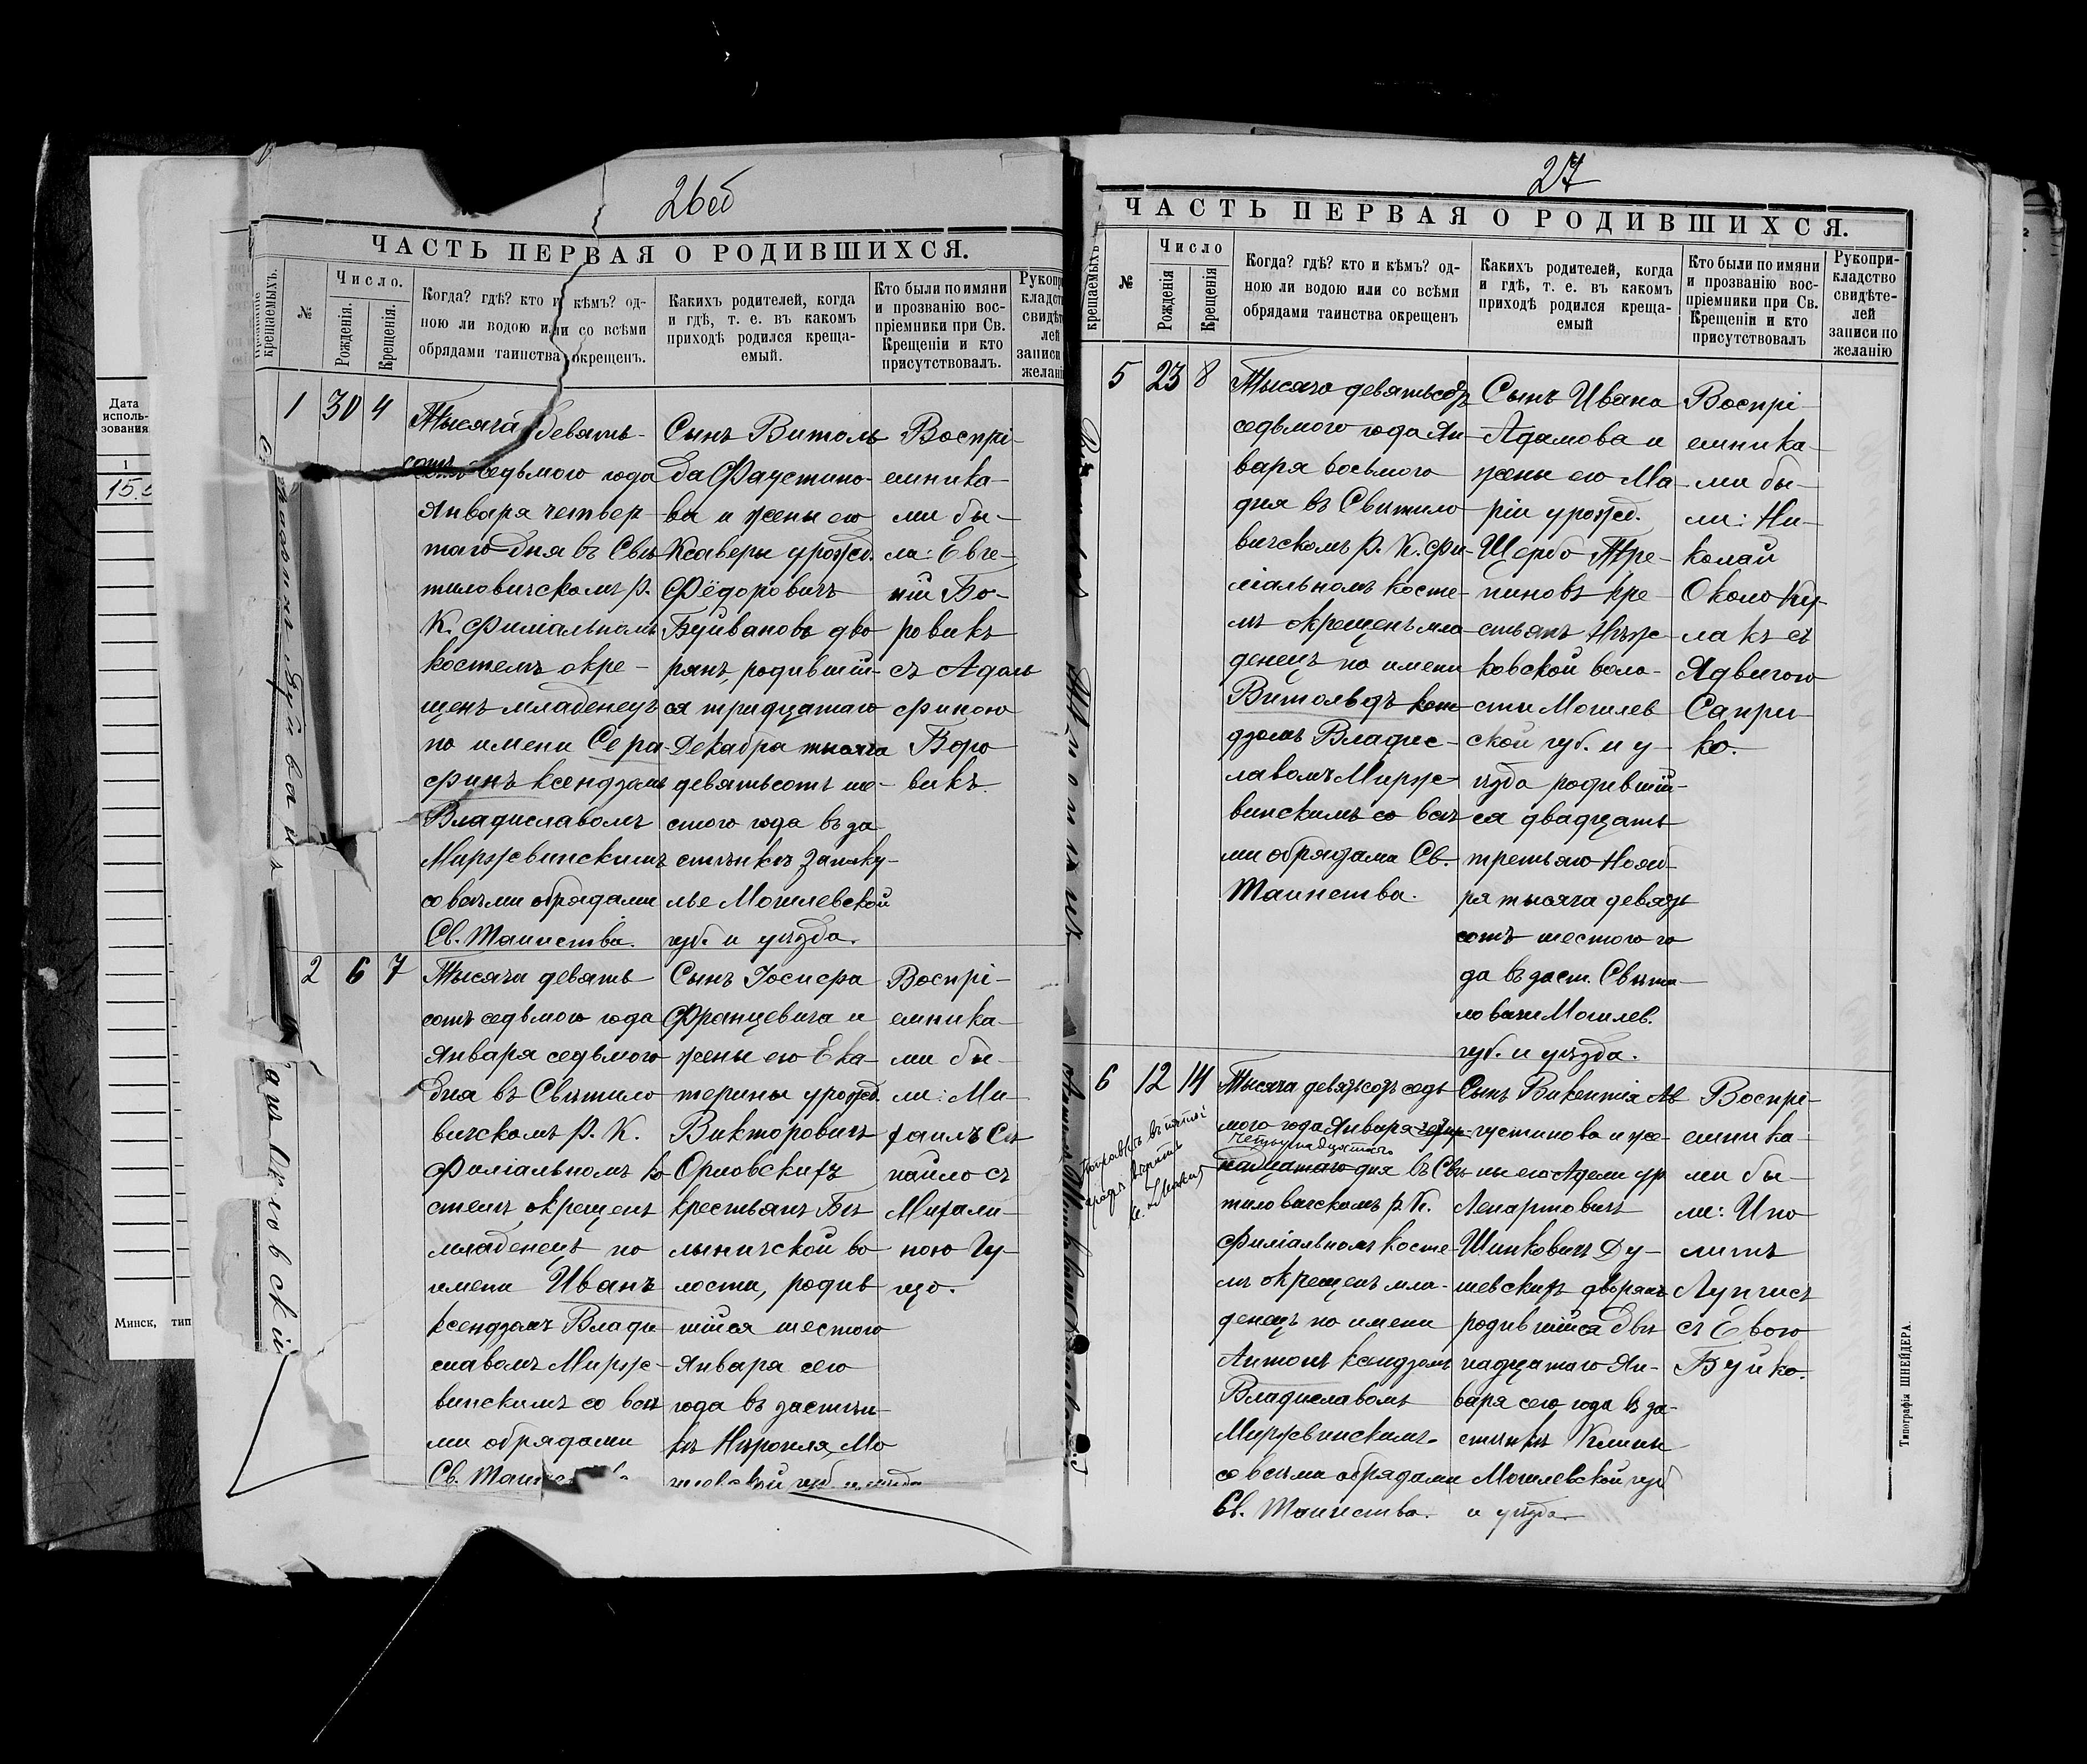 26об
ЧАСТЬ ПЕРВАЯ О РОДИВШИХСЯ.
крещаемыхъ.
№
Число.
Рожденія.
Крещенія.
Когда? гдѣ? кто и кѣмъ? од-
ною ли водою или со всѣми
обрядами таинства окрещенъ.
Какихъ родителей, когда
и гдѣ, т. е. въ какомъ
приходѣ родился креща-
емый.
Кто были по имяни
и прозванію вос-
пріемники при Св.
Крещеніи и кто
присутствовалъ.
1 30 4
Тысяча девять-
сотъ седьмого года
Января четвер-
таго дня въ Свѣ-
тиловичскомъ Р.
К. Филіальномъ
костелѣ окре-
щенъ младенецъ
по имени Сера-
фимъ ксендзомъ
Владиславомъ
Миржвинскимъ
со всѣми обрядами
Св. Таинства.
Сынъ Витоль
да Фаустино-
ва и жены его
Ксаверы урожд.
Фёдоровичъ
Буйвановъ дво
рянъ, родивший-
ся тридцатаго
Декабря тысяча
девятьсотъ ше-
стого года въ за
стѣнкѣ Замку-
лье Могилевской
губ. и уѣзда.
Воспрі-
емника-
ми бы-
ли: Евге
ній Бо-
ровикъ
съ Адоль
финою
Боро
викъ
2 6 7
Тысяча девять
сотъ седьмого года
Января седьмого
дня въ Свѣтило
вичскомъ Р. К.
Филіальномъ ко
стелѣ окрещенъ
младенецъ по
имени Иванъ
ксендзомъ Влади
славомъ Мирж-
винскимъ со всѣ
ми обрядами
Св.
Сынъ Іосифа
Францевича и
жены его Ека-
терины урожд.
Викторовичъ
Орловскихъ
крестьянъ Бѣ
лыничской во
лости, родив
шійся шестого
Января сего
года въ застѣн-
кѣ
губ.
Воспрі-
емника-
ми бы-
ли: Ми-
хаилъ
съ
Михали-
ною
27
ЧАСТЬ ПЕРВАЯ О РОДИВШИХСЯ.
крещаемыхъ
№
Число
Рожденія
Крещенія
Когда? гдѣ? кто и кѣмъ? од-
ною ли водою или со всѣми
обрядами таинства окрещенъ
Какихъ родителей, когда
и гдѣ, т. е. въ какомъ
приходѣ родился креща-
емый
Кто были по имяни
и прозванію вос-
пріемники при Св.
Крещеніи и кто
присутствовалъ
Рукопри-
кладство
свидѣте-
лей
записи по
желанію
5 23 8
Тысяча девятьсотъ
седьмого года Ян-
варя восьмого
дня въ Свѣтило
вичскомъ Р. К. Фи-
ліальномъ косте-
лѣ окрещенъ мла
денецъ по имени
Витольдъ ксен
дзомъ Владис-
лавомъ Мирж-
винскимъ со всѣ
ми обрядами Св.
Таинства.
Сынъ Ивана
Адамова и
жены его Ма-
ріи урожд.
Щербо Тре-
пиновъ кре-
стьянъ Нѣж-
ковской воло-
сти Могилев
ской губ. и у-
ѣзда родивший-
ся двадцать
третьяго Нояб-
ря тысяча девять
сотъ шестого го
да въ заст. Свѣти-
ловичи Могилев.
губ. и уѣзда.
Воспрі-
емника-
ми бы-
ли: Ни-
колай
Около Ку-
лакъ съ
Ядвигою
Сапри-
ко.
6 12 14
Тысяча девятьсотъ седь
мого года Января
четырнадцатаго
надцатаго дня въ Свѣ
тиловичскомъ Р. К.
Филіальномъ косте-
лѣ окрещенъ мла-
денецъ по имени
Антонъ ксендзомъ
Владиславомъ
Миржвинскимъ
со всѣми обрядами
Св. Таинства.
Сынъ Викентія Ав
густинова и же-
ны его Адели ур
Ленартовичъ
Шинковичъ Ду-
шевскихъ дворянъ
родившійся двѣ
надцатаго Ян-
варя сего года въ за-
стѣнкѣ Клины
Могилевской губ
и уѣзда.
Воспрі-
емника-
ми бы-
ли: Ипо
литъ
Лунгисъ
съ Евою
Буйко.
Типографія ШНЕЙДЕРА.
Дата
исполь-
зования
1
Минск, тип